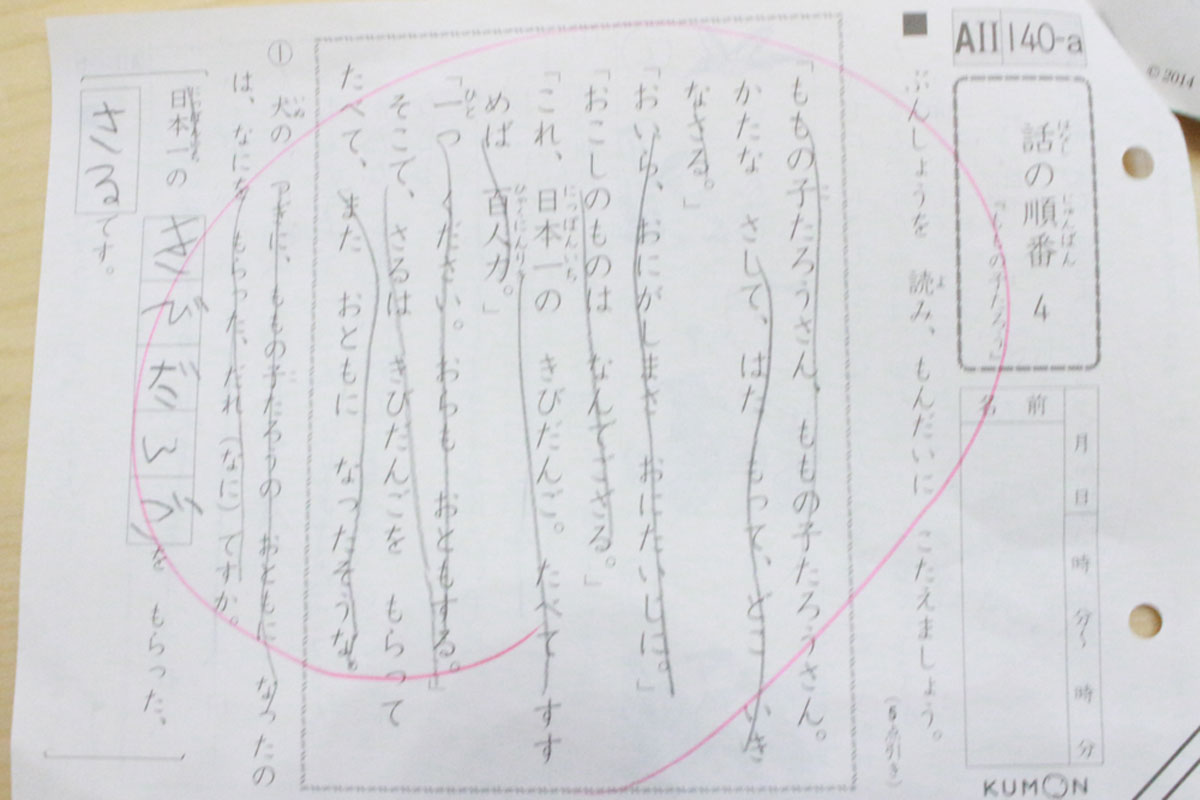 AII 140-a
© 2014
話の順番 4
はなし じゅんばん
「ももの子たろう」
月 日 時 分〜 時 分
名前
KUMON
ぶんしょうを 読み、もんだいに こたえましょう。
「ももの子たろうさん、ももの子たろうさん。
かたな さして、はた もって、どこ いき
なさる。」
「おいら、おにがしまさ おにたいじに。」
「おこしのものは なんでござる。」
「これ、日本一の きびだんご。たべて すす
めば 百人力。」
「一つ ください。おらも おともする。」
そこで、さるは きびだんごを もらって
たべて、また おともに なったそうな。
① 犬の つぎに、ももの子たろうの おともに なったの
は、なにを もらった、だれ(なに)ですか。
日本一の きびだんごを もらった、
さるです。